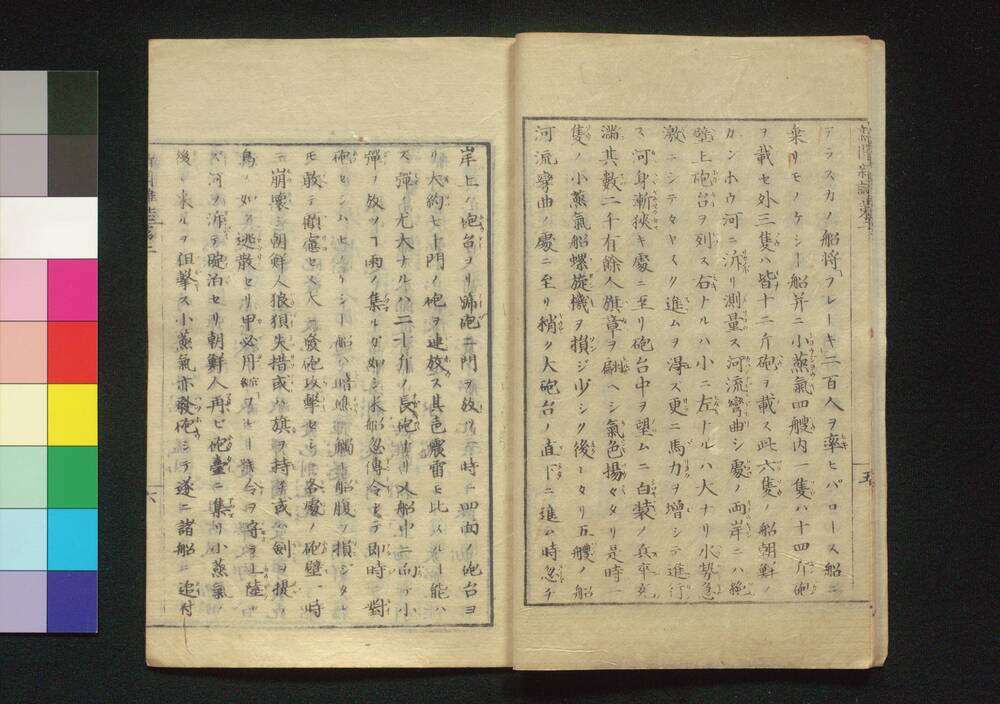 アラスカノ船将フレーキ二百人ヲ率ヒパロース船ニ
乗リモノケシー船并ニ小蒸氣四艘内一隻ハ十四斤砲
ヲ載セ外三隻ハ皆十二斤砲ヲ載ス此六隻ノ船朝鮮ノ
カンホウ河ニ泝リ測量ス河流彎曲シ處ノ両岸ニハ絶
壁上砲台ヲ列ス右ナルハ小ニ左ナルハ大ナリ水勢急
激ニシテタヤスク進ムヲ得ス更ニ馬力ヲ增シテ進行
ス河身漸狹キ處ニ至リ砲台中ヲ望ムニ白装ノ兵卒充
滿其數二千有餘人旗章ヲ翻ヘシ氣色揚々タリ是時一
隻ノ小蒸氣船螺旋機ヲ損ジ少シク後レタリ五艘ノ船
河流彎曲ノ處ニ至リ稍ク大砲台ノ直下ニ進ム時忽チ
岸上ノ砲台ヨリ號砲二門ヲ放ツ時ニ四面ノ砲台ヨ
リ大約七十門ノ砲ヲ連放ス其色震雷モ比スルニ能ハ
ス彈ノ尤大ナルハ二十斤ノ長砲ナリ又船中ニ向テ小
彈ヲ放ツヿ雨ノ集ルガ如シ米船忽傳令シテ即時對
砲セシムモノケシー船ハ暗礁ニ觸レ船腹ヲ損ジタレ
モ敢テ顧慮セス大ニ發砲攻擊セシニ各處ノ砲壁一時
ニ崩壞シ朝鮮人狼狽失措或ハ旗ヲ持チ或ハ劍ヲ提ケ
鳥ノ如ク逃散セリ甲必丹 號令ヲ守テ上陸セ
ズ河ヲ泝テ碇泊セリ朝鮮人再ビ砲臺ニ集リ小蒸氣ノ
後レ來ルヲ狙擊ス小蒸氣亦發砲シテ遂ニ諸船ニ追付